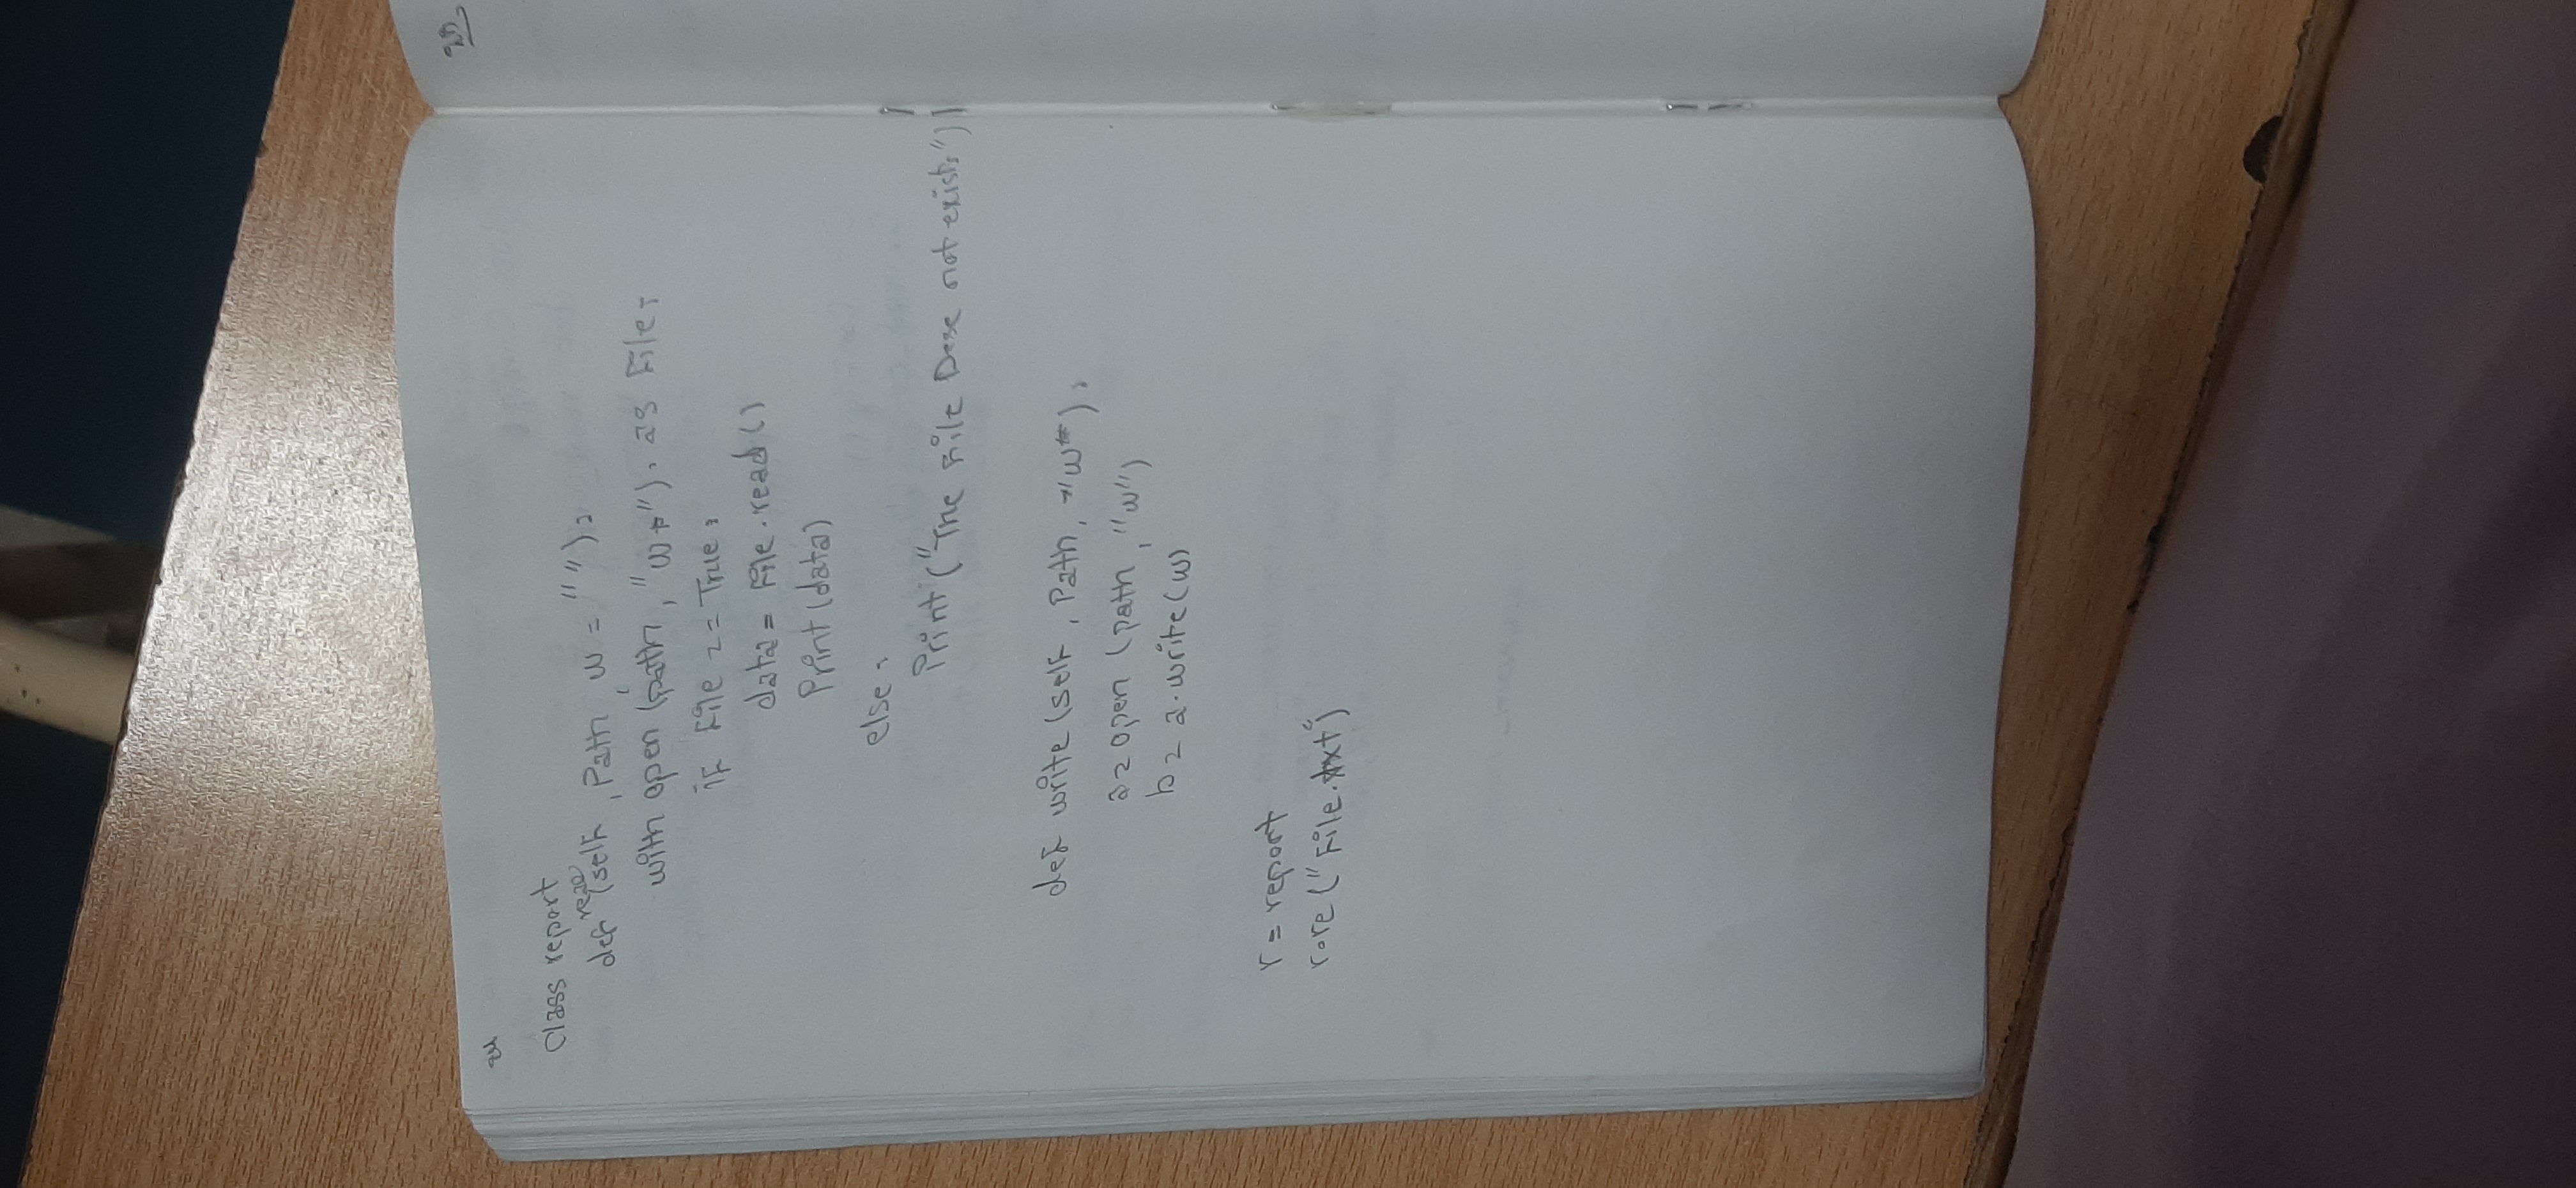 24
class report
def read (self, Path, w = ""):
with open (path, "w+"): as File:
if File == True:
data = File.read()
Print (data)
else:
Print ("The File Dese not exists")
def write (self, Path, "w"):
a = open (path, "w")
b = a.write(w)
r = report
r.re ("File.txt")